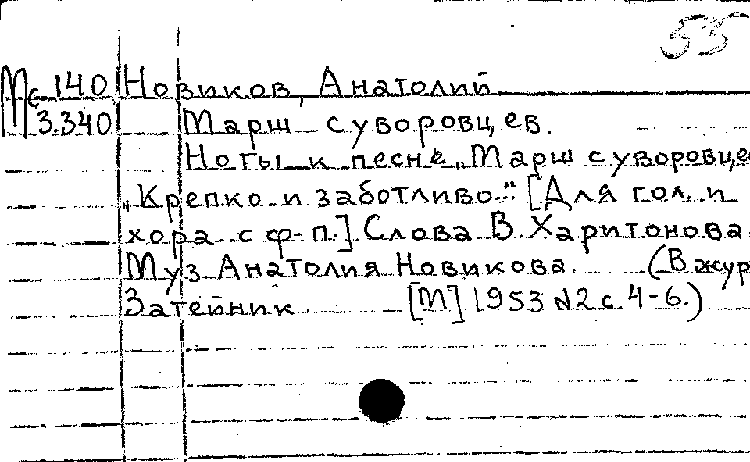 55
Мс 140 Новиков, Анатолий
3.340 Марш суворовцев.
Ноты к песне „Марш суворовце
„Крепко и заботливо..." [Для гол. и
хора с ф-п.] Слова В. Харитонова.
Муз Анатолия Новикова. (В жур
Затейник [М] 1953 №2 с. 4-6.)